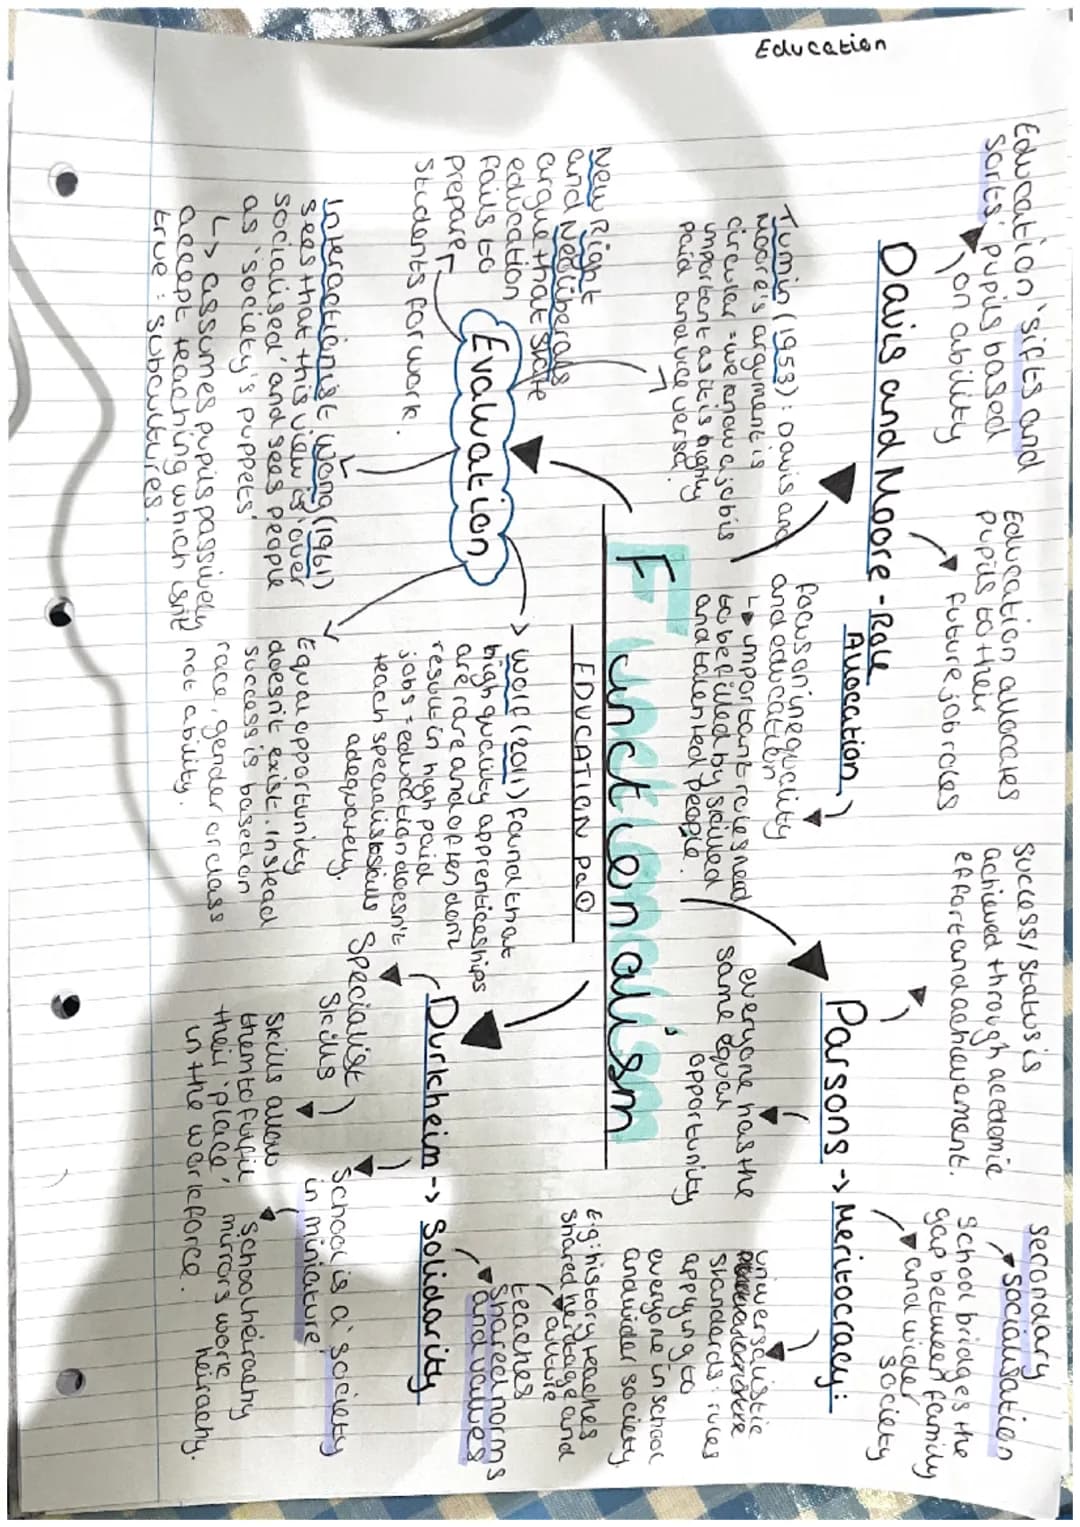 Education
Functionalism
EDUCATION Pa①
Davis and Moore - Role
Allocation
Education 'sifts and
sorts' pupils based
on ability
Education allocates
pupils to their
future job roles
Focus on inequality
and education
↳ important roles need
to be filled by skilled
and talented people.
Tumin (1953): Davis and
Moore's argument is
circular = we know a job is
important as it is highly
paid and vice versa.
Parsons -> Meritocracy:
Success/status is
achieved through academic
effort and achievement.
Secondary
socialisation
School bridges the
gap between family
and wider
society
everyone has the
same equal
opportunity
universalistic
standards: rules
apply to
everyone in school
and wider society.
Durkheim -> Solidarity
Shared norms
and values
teaches
shared heritage and
culture
E.g: history teaches
school is a 'society
in miniature'
school heirachy
mirrors work
heirachy.
Specialist
skills
skills allow
them to fulfil
their 'place'
in the workforce.
Evaluation
New Right
and Neoliberals
argue that state
education
fails to
prepare
students for work.
Interactionist Wrong (1961)
sees that this view is 'over
socialised' and sees people
as 'society's puppets'
↳ assumes pupils passively
accept teaching which isn't
true: subcultures.
Wolf (2011) found that
high quality apprenticeships
are rare and often don't
result in high paid
jobs = education doesn't
teach specialist skills
adequately.
Equal opportunity
doesn't exist. Instead
success is based on
race, gender or class
not ability.